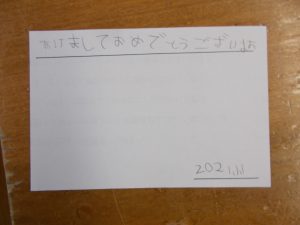 あけましておめでとうござい
2021.1.1